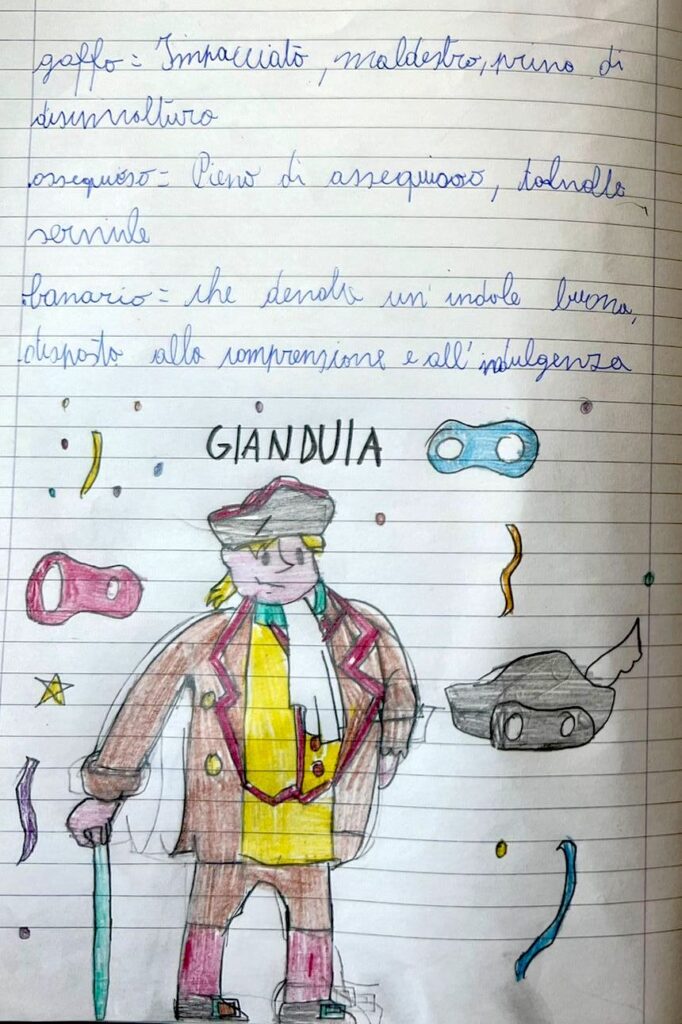 goffo = Impacciato, maldestro, privo di
disinvoltura
ossequioso = Pieno di
servile
bonario = che denota un'indole buona,
disposto alla comprensione e all'indulgenza
GIANDUIA